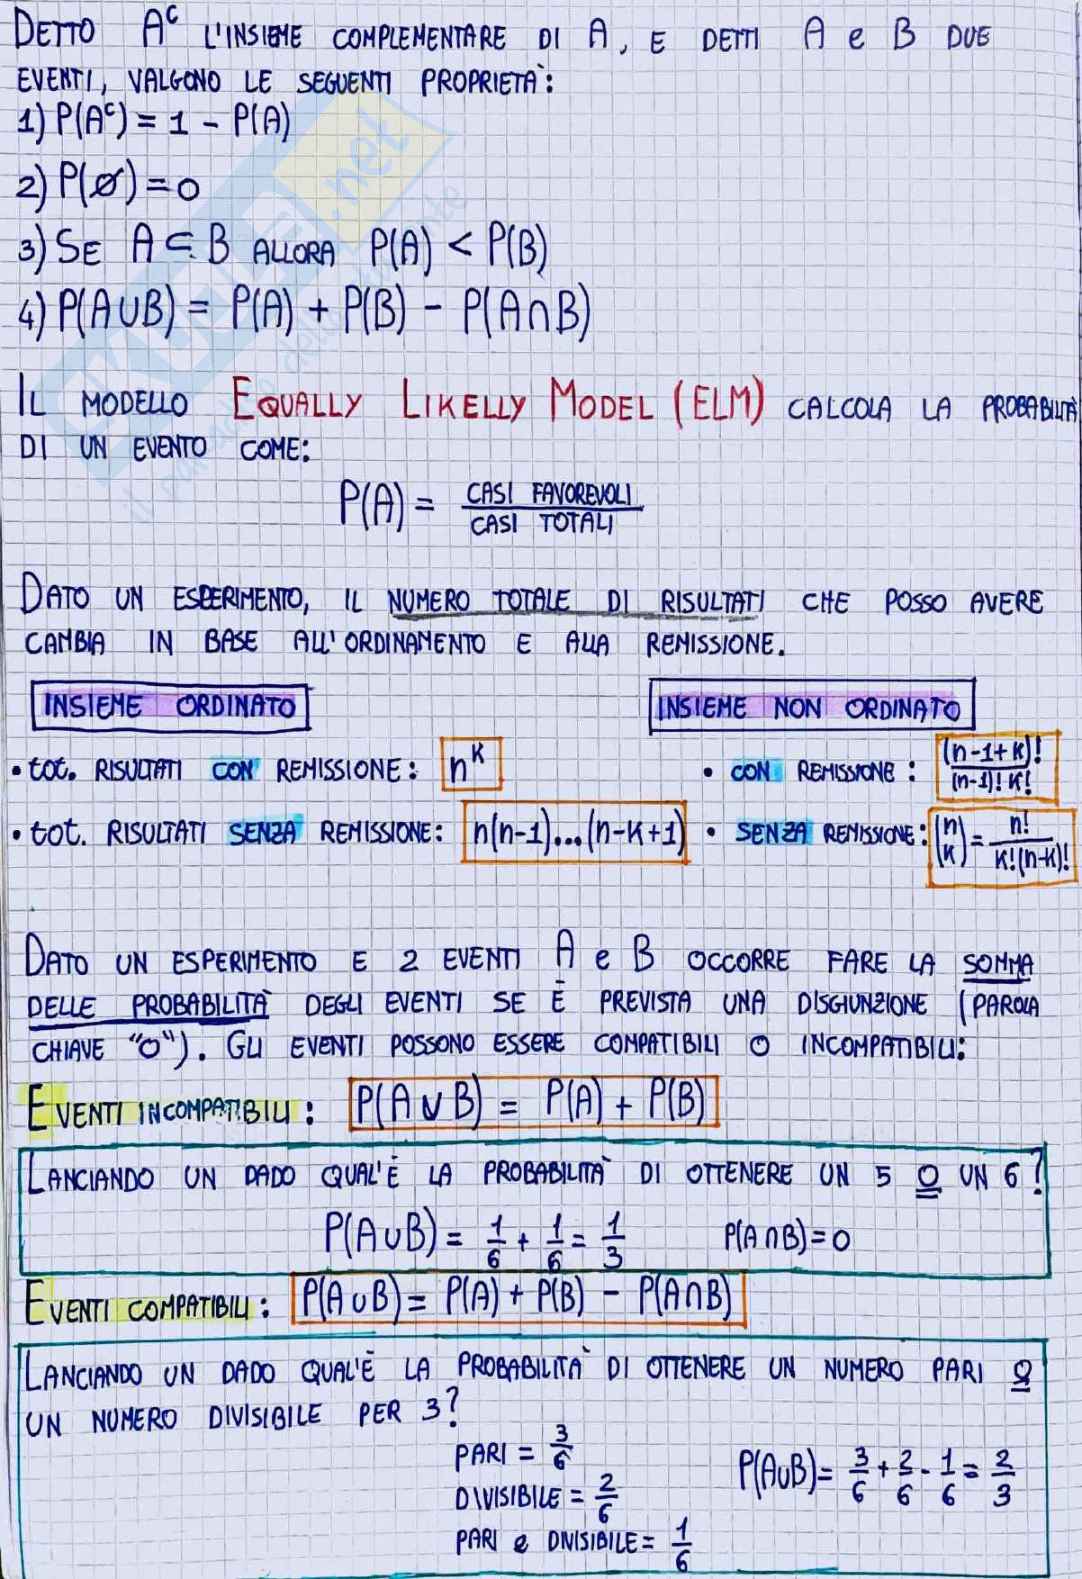 DETTO A^c L'INSIEME COMPLEMENTARE DI A, E DETTI A e B DUE
EVENTI, VALGONO LE SEGUENTI PROPRIETÀ:
1) P(A^c) = 1 - P(A)
2) P(∅) = 0
3) SE A ⊂ B ALLORA P(A) < P(B)
4) P(A∪B) = P(A) + P(B) - P(A∩B)
IL MODELLO EQUALLY LIKELLY MODEL (ELM) CALCOLA LA PROBABILITÀ
DI UN EVENTO COME:
P(A) = CASI FAVOREVOLI / CASI TOTALI
DATO UN ESPERIMENTO, IL NUMERO TOTALE DI RISULTATI CHE POSSO AVERE
CAMBIA IN BASE ALL'ORDINAMENTO E ALLA REMISSIONE.
INSIEME ORDINATO
• tot. RISULTATI CON REMISSIONE: n^k
• tot. RISULTATI SENZA REMISSIONE: n(n-1)...(n-k+1)
INSIEME NON ORDINATO
• CON REMISSIONE: (n-1+k)! / (n-1)! k!
• SENZA REMISSIONE: (n k) = n! / k!(n-k)!
DATO UN ESPERIMENTO E 2 EVENTI A e B OCCORRE FARE LA SOMMA
DELLE PROBABILITÀ DEGLI EVENTI SE È PREVISTA UNA DISGIUNZIONE (PAROLA
CHIAVE "O"). GLI EVENTI POSSONO ESSERE COMPATIBILI O INCOMPATIBILI:
EVENTI INCOMPATIBILI: P(A∪B) = P(A) + P(B)
LANCIANDO UN DADO QUAL'È LA PROBABILITÀ DI OTTENERE UN 5 O UN 6?
P(A∪B) = 1/6 + 1/6 = 1/3 P(A∩B) = 0
EVENTI COMPATIBILI: P(A∪B) = P(A) + P(B) - P(A∩B)
LANCIANDO UN DADO QUAL'È LA PROBABILITÀ DI OTTENERE UN NUMERO PARI O
UN NUMERO DIVISIBILE PER 3?
PARI = 3/6
DIVISIBILE = 2/6
PARI e DIVISIBILE = 1/6
P(A∪B) = 3/6 + 2/6 - 1/6 = 2/3